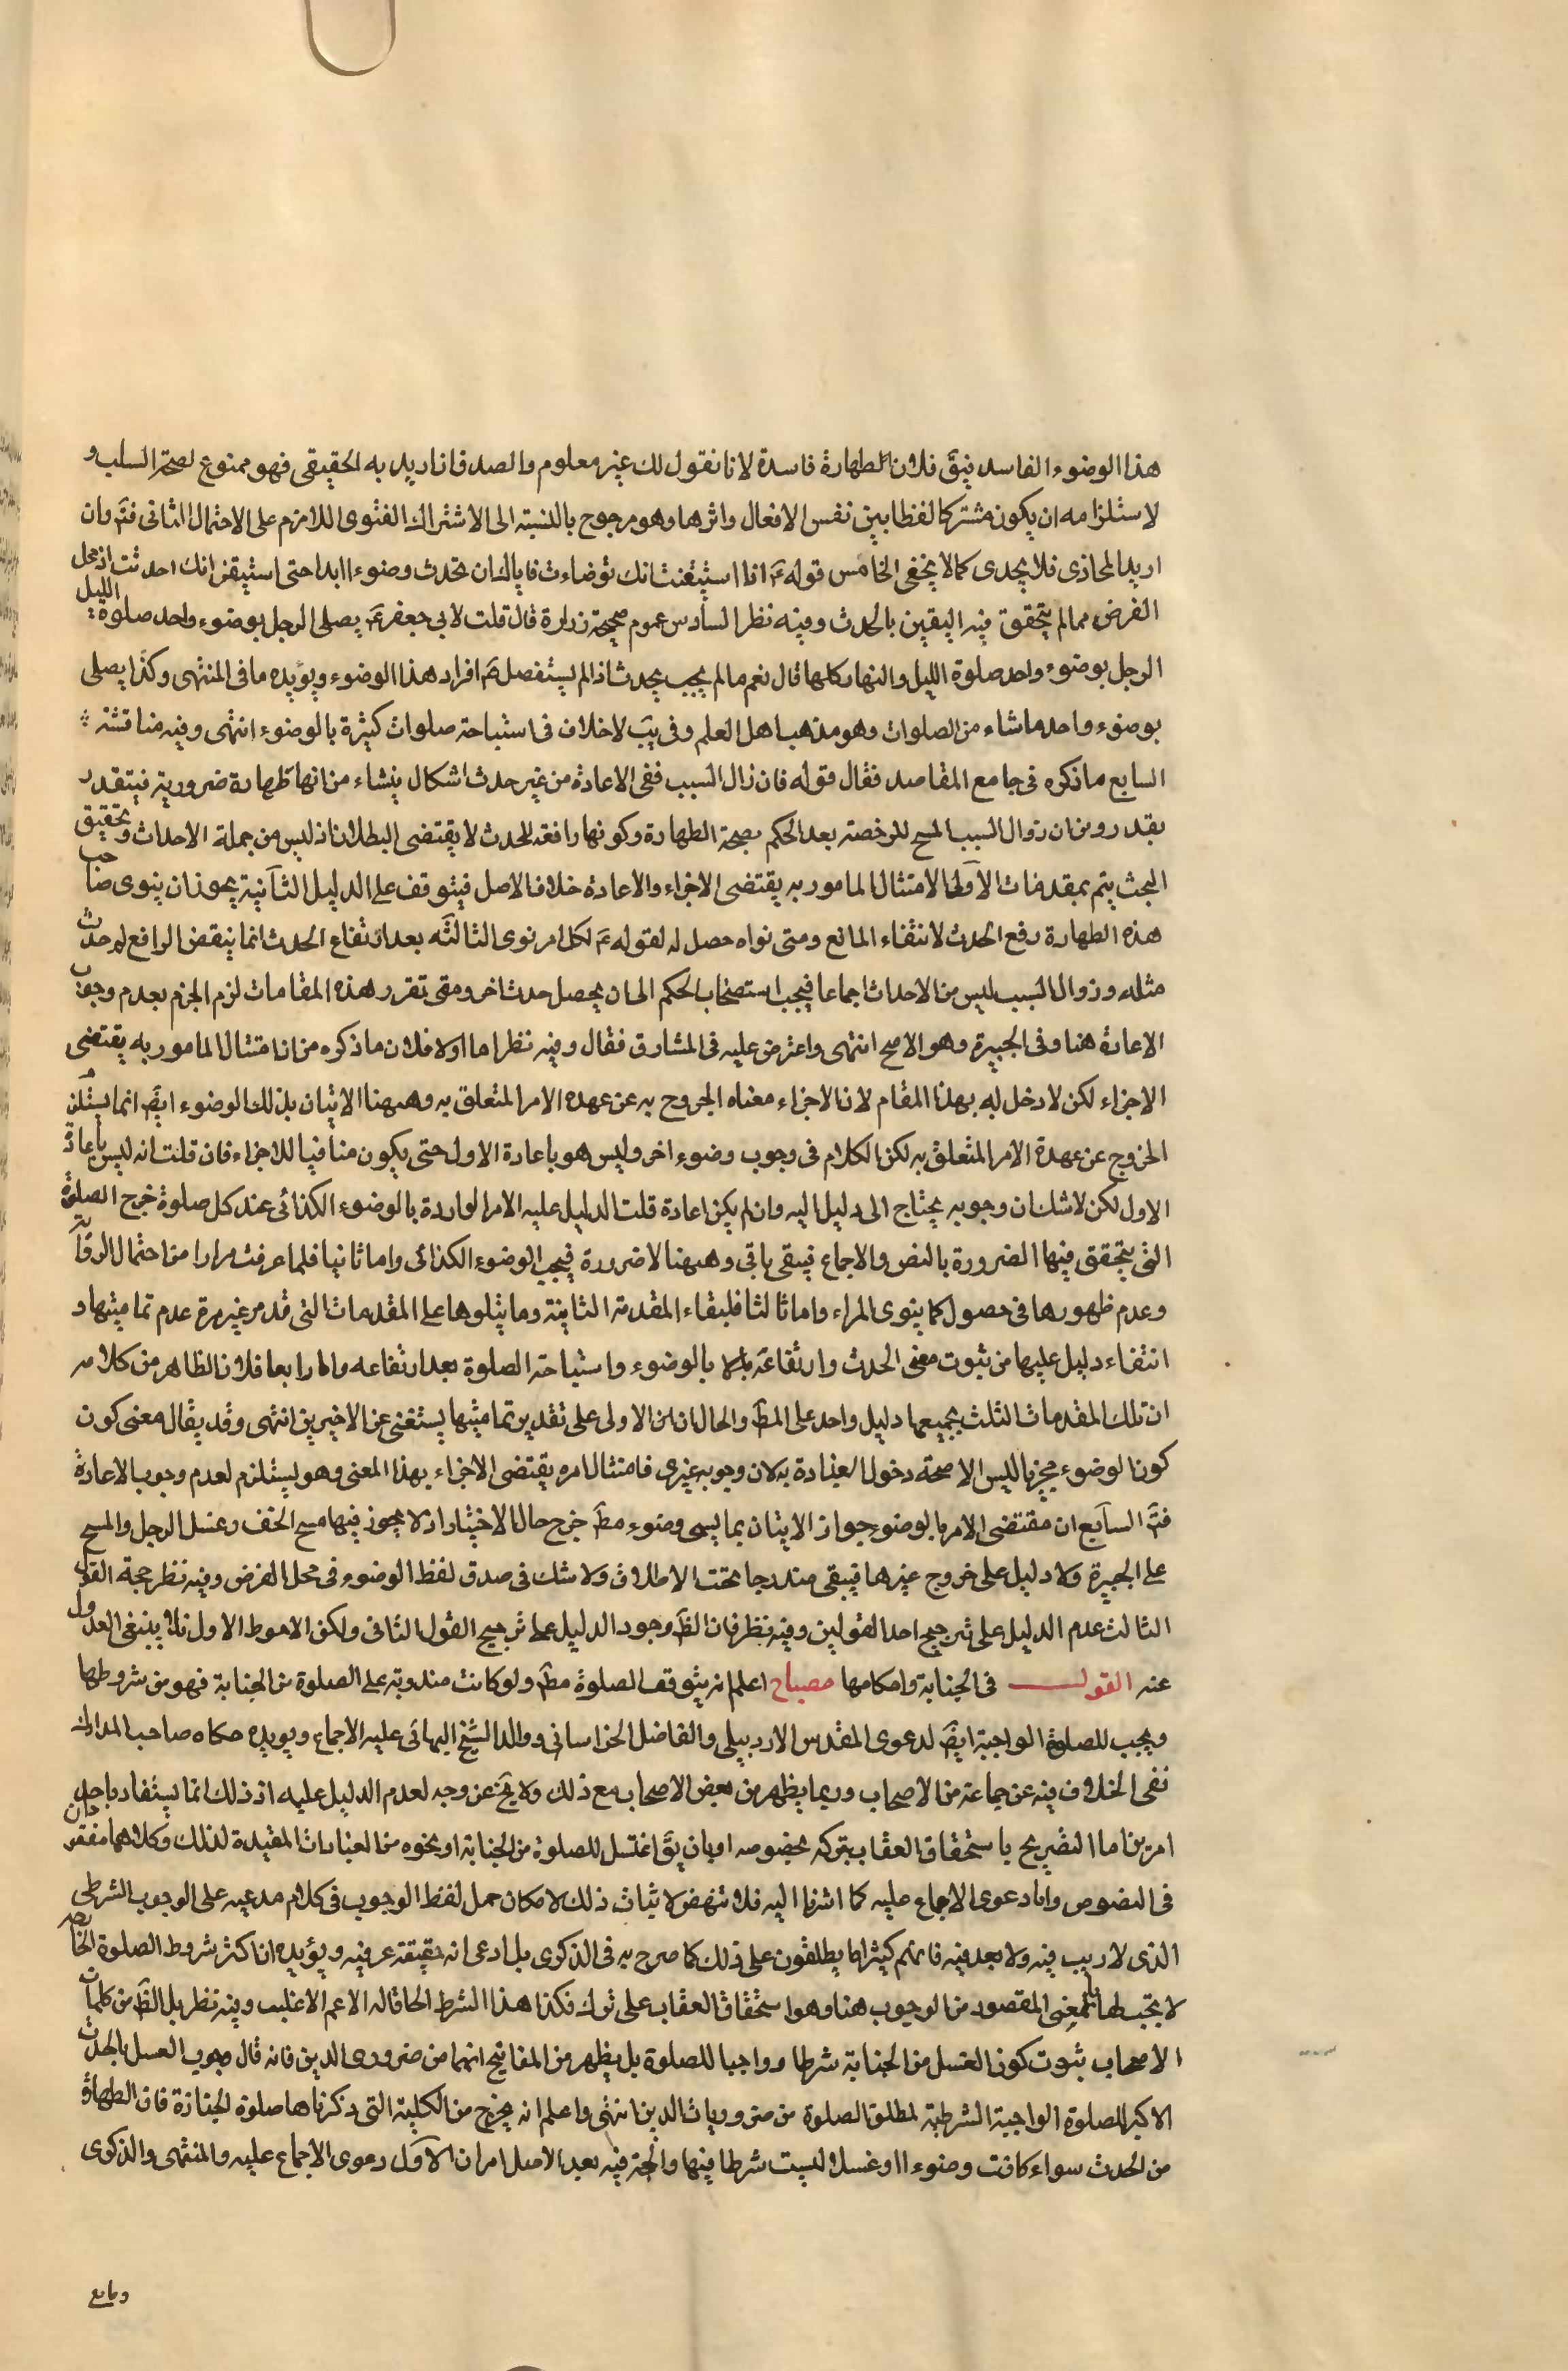 هذا الوضوء الفاسد فيق فلان الطهارة فاسدة لانا نقول لك غير معلوم والصدق ان اريد به الحقيقى فهو ممنوع لصحة السلب و
لاستلزامه ان يكون مشتركا لفظا بين نفس الافعال واثرها وهو مرجوح بالنسبة الى الاشتراك المعنوى اللازم على الاحتمال الثانى فتم وان
اريد المجازى فلا يجدى كما لا يخفى الخامس قوله ع اذا استيقنت انك توضات فاياك ان تحدث وضوءا ابدا حتى استيقن انك احدثت اذ محل
الفرض ممالم يتحقق فيه اليقين بالحدث وفيه نظر السادس عموم صحيحة زرارة قال قلت لابى جعفر ع يصلى الرجل بوضوء واحد صلوة الليل
الرجل بوضوء واحد صلوة الليل والنهار كلها قال نعم مالم يجب بحدث اذ لم يستفصل ع افراد هذا الوضوء ويؤيده ما فى المنتهى وكذا يصلى
بوضوء واحد ما شاء من الصلوات وهو مذهب اهل العلم وفى يب لا خلاف فى استباحة صلوات كثيرة بالوضوء انتهى وفيه مناقشة
السابع ما ذكره فى جامع المقاصد فقال قوله فان زال السبب ففى الاعادة من غير حدث اشكال ينشاء من انها طهارة ضرورية فيتقدر
بقدر ومن ان زوال السبب المبيح للرخصة بعد الحكم بصحة الطهارة وكونها رافعة للحدث لا يقتضى البطلان اذ ليس من جملة الاحداث وتحقيق
البحث يتم بمقدمات الاولى الامتثال المامور به يقتضى الاجزاء والاعادة خلاف الاصل فيتوقف على الدليل الثانية يجوز ان ينوى صاحب
هذه الطهارة رفع الحدث لانتفاء المانع ومتى نواه حصل له لقوله ع لكل امر نوى الثالثة بعد ارتفاع الحدث انما ينقض الرافع له حدث
مثله وزوال السبب ليس من الاحداث اجماعا فيجب استصحاب الحكم الى ان يحصل حدث اخر ومتى تقرر هذه المقامات لزم الجزم بعدم وجوب
الاعادة هنا وفى الجبيرة وهو الاصح انتهى واعترض عليه فى المشارق فقال وفيه نظر اما اولا فلان ما ذكره من ان امتثال المامور به يقتضى
الاجزاء لكن لا دخل له بهذا المقام لان الاجزاء معناه الخروج به عن عهدة الامر المتعلق به وههنا الاتيان بذلك الوضوء ايض انما يستلزم
الخروج عن عهدة الامر المتعلق به لكن الكلام فى وجوب وضوء اخر وليس هو باعادة الاول حتى يكون منافيا للاجزاء فان قلت انه ليس باعادة
الاول لكن لا شك ان وجوبه يحتاج الى دليل اليه وان لم يكن اعادة قلت الدليل عليه الامر الواردة بالوضوء الكذائى عند كل صلوة خرج الصلوة
التى يتحقق فيها الضرورة بالنص والاجماع فيبقى باقى وههنا لا ضرورة فيجب الوضوء الكذائى واما ثانيا فلما عرفت مرارا من احتمال الروايات
وعدم ظهورها فى حصول كما ينوى المراء واما ثالثا فلبقاء المقدمة الثانية وما يتلوها على المقدمات التى قد مر غير مرة عدم تماميتها و
انتفاء دليل عليها من ثبوت معنى الحدث وارتفاعه بالا بالوضوء واستباحة الصلوة بعد ارتفاعه واما رابعا فلان الظاهر من كلامه
ان تلك المقدمات الثلث بجميعها دليل واحد على المط والحال ان الاولى على تقدير تماميتها يستغنى عن الاخيرين انتهى وقد يقال معنى كون
كون الوضوء مجزيا ليس الا صحة دخول العبادة به لان وجوبه غيرى فامتثال امره يقتضى الاجزاء بهذا المعنى وهو يستلزم لعدم وجوب الاعادة
فتم السابع ان مقتضى الامر بالوضوء جواز الاتيان بما يسمى وضوء مط خرج حال الاختيار اذ لا يجوز فيها مسح الخف وغسل الرجل والمسح
على الجبيرة ولا دليل على خروج غيرها فيبقى مندرجا تحت الاطلاق ولا شك فى صدق لفظ الوضوء فى محل الفرض وفيه نظر حجة القول
الثالث عدم الدليل على ترجيح احد القولين وفيه نظر فان الظ وجود الدليل على ترجيح القول الثانى ولكن الاحوط الاول فلا ينبغى العدول
عنه القول فى الجنابة واحكامها مصباح اعلم انه يتوقف الصلوة مط ولو كانت مندوبة على الصلوة من الجنابة فهو من شروطها
ويجب للصلوة الواجبة ايض لدعوى المقدس الاردبيلى والفاضل الخراسانى ووالد الشيخ البهائى عليه الاجماع ويويده حكاه صاحب المدارك
نفى الخلاف فيه عن جماعة من الاصحاب وربما يظهر من بعض الاصحاب مع ذلك ولا يخ عن وجه لعدم الدليل عليه اذ ذلك انما يستفاد باحد
امرين اما التصريح باستحقاق العقاب بتركه بخصوصه او بان يق اغتسل للصلوة من الجنابة او نحوه من العبارات المفيدة لذلك وكلاهما مفقودان
فى النصوص واما دعوى الاجماع عليه كما اشرنا اليه فلا تنهض لاثبات ذلك لامكان حمل لفظ الوجوب فى كلام مدعيه على الوجوب الشرطى
الذى لا ريب فيه ولا بعد فيه فانهم كثيرا ما يطلقون على ذلك كما صرح به فى الذكرى بل ادعى انه حقيقة عرفية ويؤيده ان اكثر شروط الصلوة الخاصة
لا يجب لها بالمعنى المقصود من الوجوب هنا وهو استحقاق العقاب على ترك فكذا هذا الشرط الحاقا له الاعم الاغلب وفيه نظر بل الظ من كلمات
الاصحاب ثبوت كون الغسل من الجنابة شرطا وواجبا للصلوة بل يظهر من المفاتيح انهما من ضرورى الدين فانه قال وجوب الغسل بالحدث
الاكبر للصلوة الواجبة الشرطية لمطلق الصلوة من ضروريات الدين انتهى واعلم انه يخرج من الكلية التى ذكرناها صلوة الجنازة فان الطهارة
من الحدث سواء كانت وضوءا او غسلا ليست شرطا فيها والحجة فيه بعد الاصل امران الاول دعوى الاجماع عليه والمنتهى والذكرى